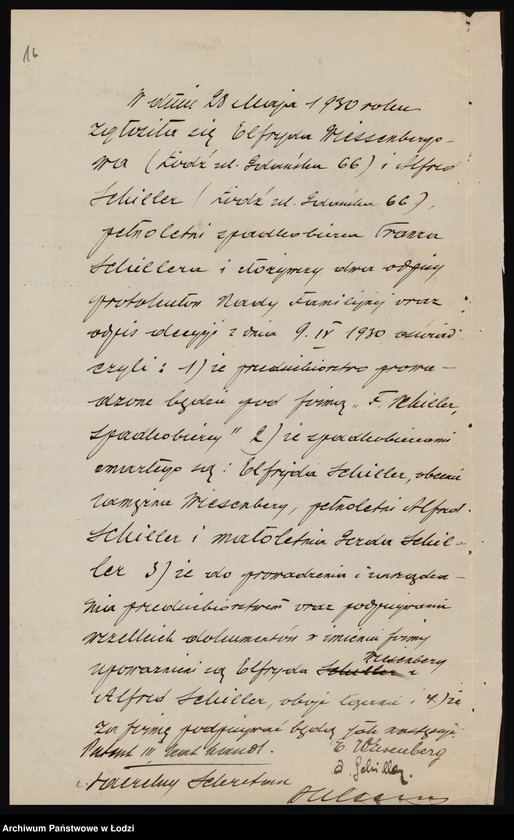 16
W dniu 28 Maja 1930 roku
zgłosiła się Elfryda Wiessenbergo-
wa (Łódź ul. Gdańska 66) i Alfred
Schiller (Łódź ul. Gdańska 66),
pełnoletni spadkobierca Franza
Schillera i złożywszy dwa odpisy
protokułów Rady Familijnej oraz
odpis decyzji z dnia 9. IV 1930 oświad-
czyli: 1) że przedsiębiorstwo prowa-
dzone będzie pod firmą „F. Schiller,
spadkobiercy" 2) że spadkobiercami
zmarłego są: Elfryda Schiller, obecnie
zamężna Wiesenberg, pełnoletni Alfred
Schiller i małoletnia Gerda Schil-
ler 3) że do prowadzenia i zarządza-
nia przedsiębiorstwem oraz podpisywania
wszelkich dokumentów w imieniu firmy
upoważnieni są Elfryda Schiller Wiesenberg i
Alfred Schiller, oboje łącznie i 4.) że
za firmę podpisywać będą jak następuje:
Patent III kat. handl.
E. Wiesenberg
A. Schiller
Naczelny Sekretarz
Archiwum Państwowe w Łodzi